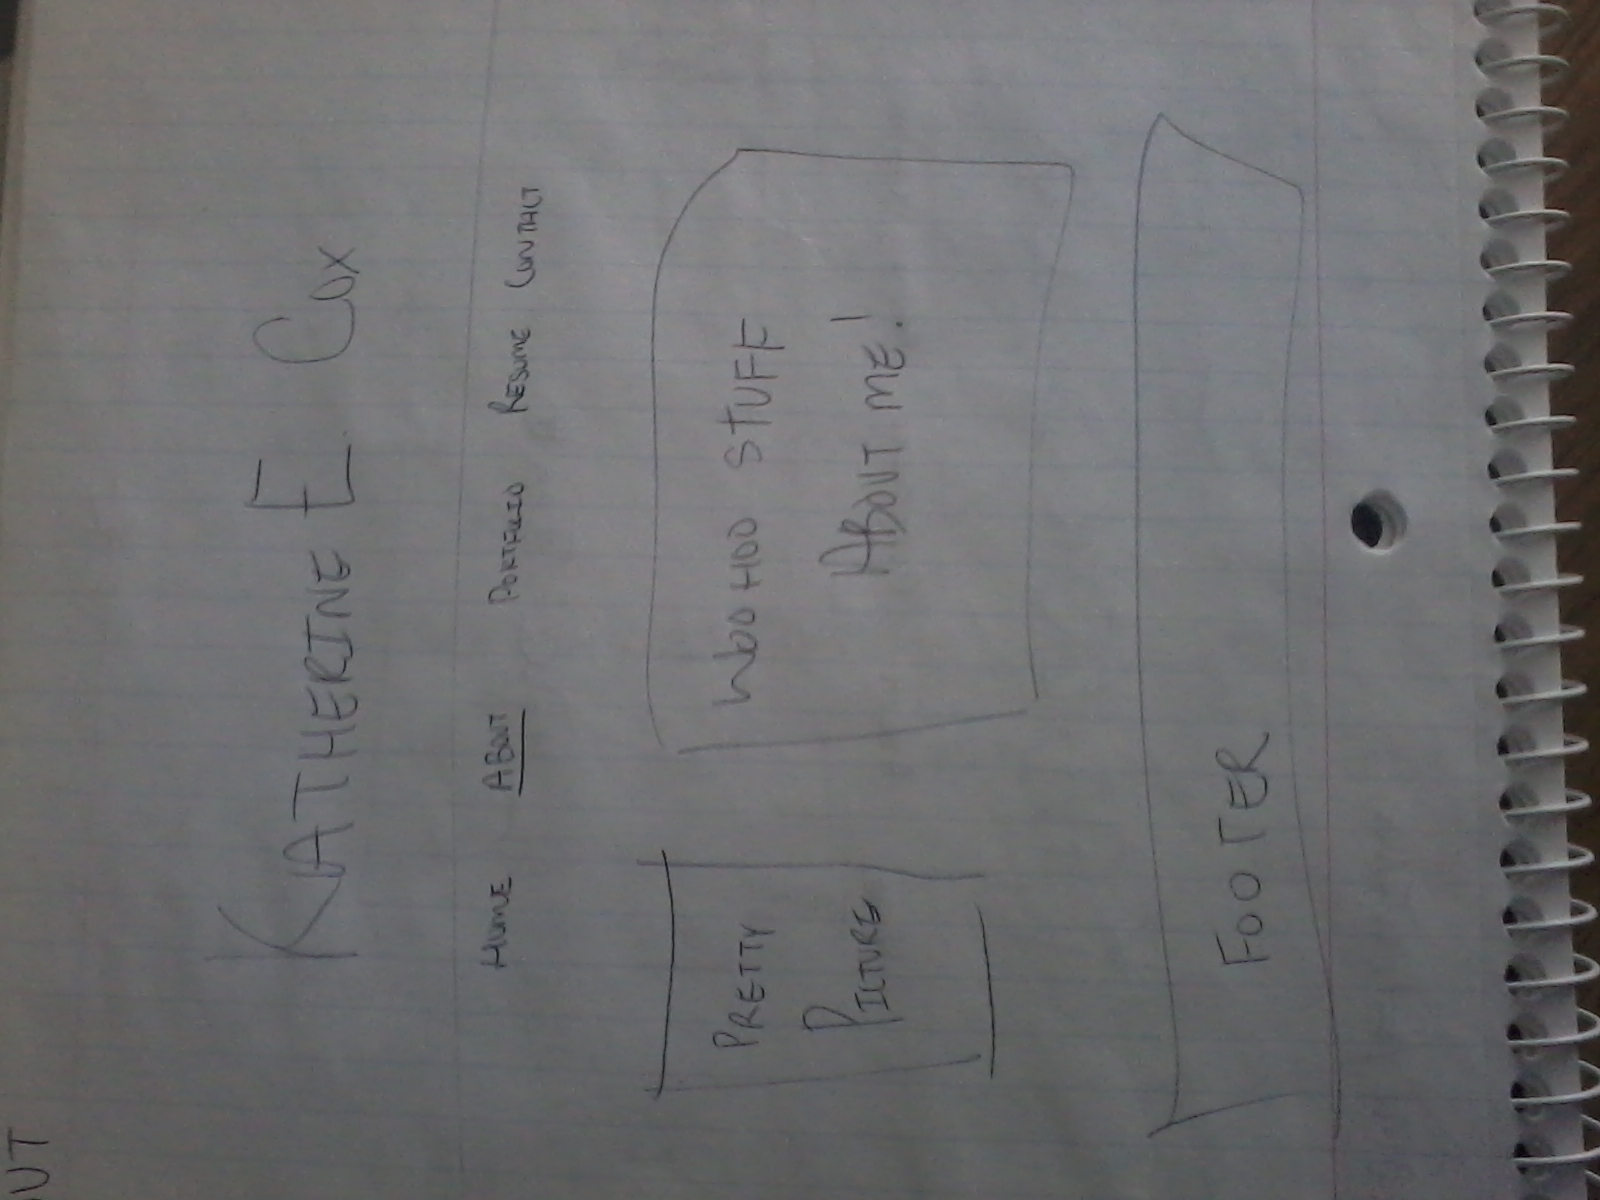 UT
KATHERINE E. COX
HOME ABOUT PORTFOLIO RESUME CONTACT
PRETTY
PICTURE
WOOHOO STUFF
ABOUT ME!
FOOTER